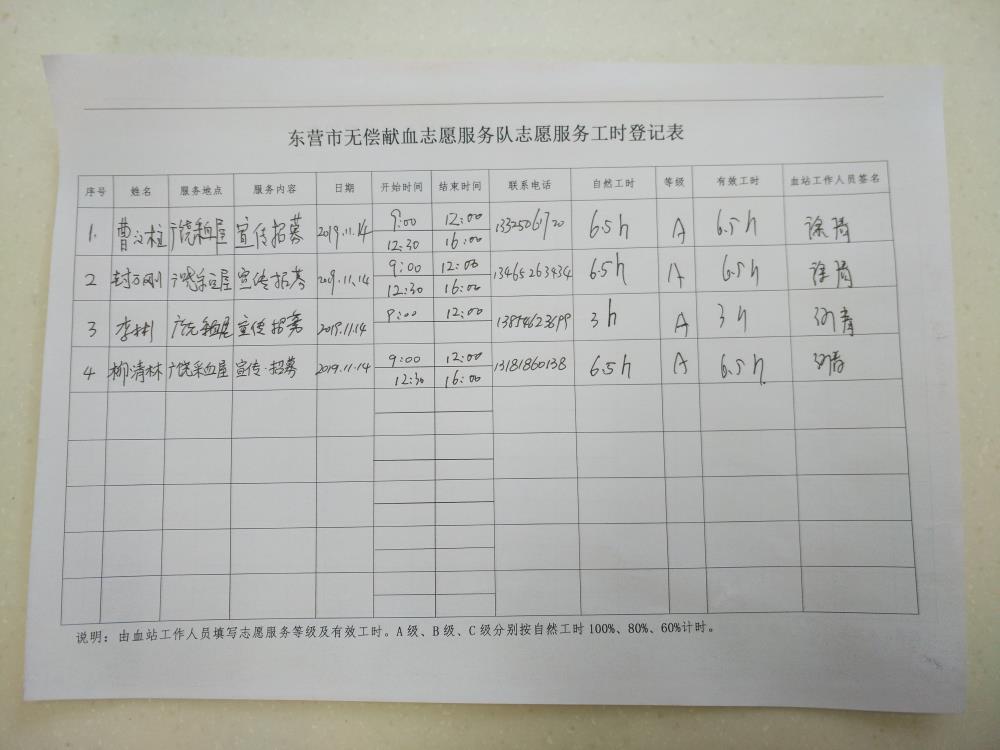 东营市无偿献血志愿服务队志愿服务工时登记表
序号 姓名 服务地点 服务内容 日期 开始时间 结束时间 联系电话 自然工时 等级 有效工时 血站工作人员签名
1. 曹文柱 广饶采血屋 宣传招募 2019.11.14 9:00 12:00 6.5h A 6.5h
12:30 16:00
2 封万刚 广饶采血屋 宣传招募 2019.11.14 9:00 12:00 13465263434 6.5h A 6.5h
12:30 16:00
3 李彬 广饶采血屋 宣传招募 2019.11.14 9:00 12:00 13854623699 3h A 3h
4 柳清林 广饶采血屋 宣传·招募 2019.11.14 9:00 12:00 13181860138 6.5h A 6.5h
12:30 16:00
说明：由血站工作人员填写志愿服务等级及有效工时。A级、B级、C级分别按自然工时100%、80%、60%计时。